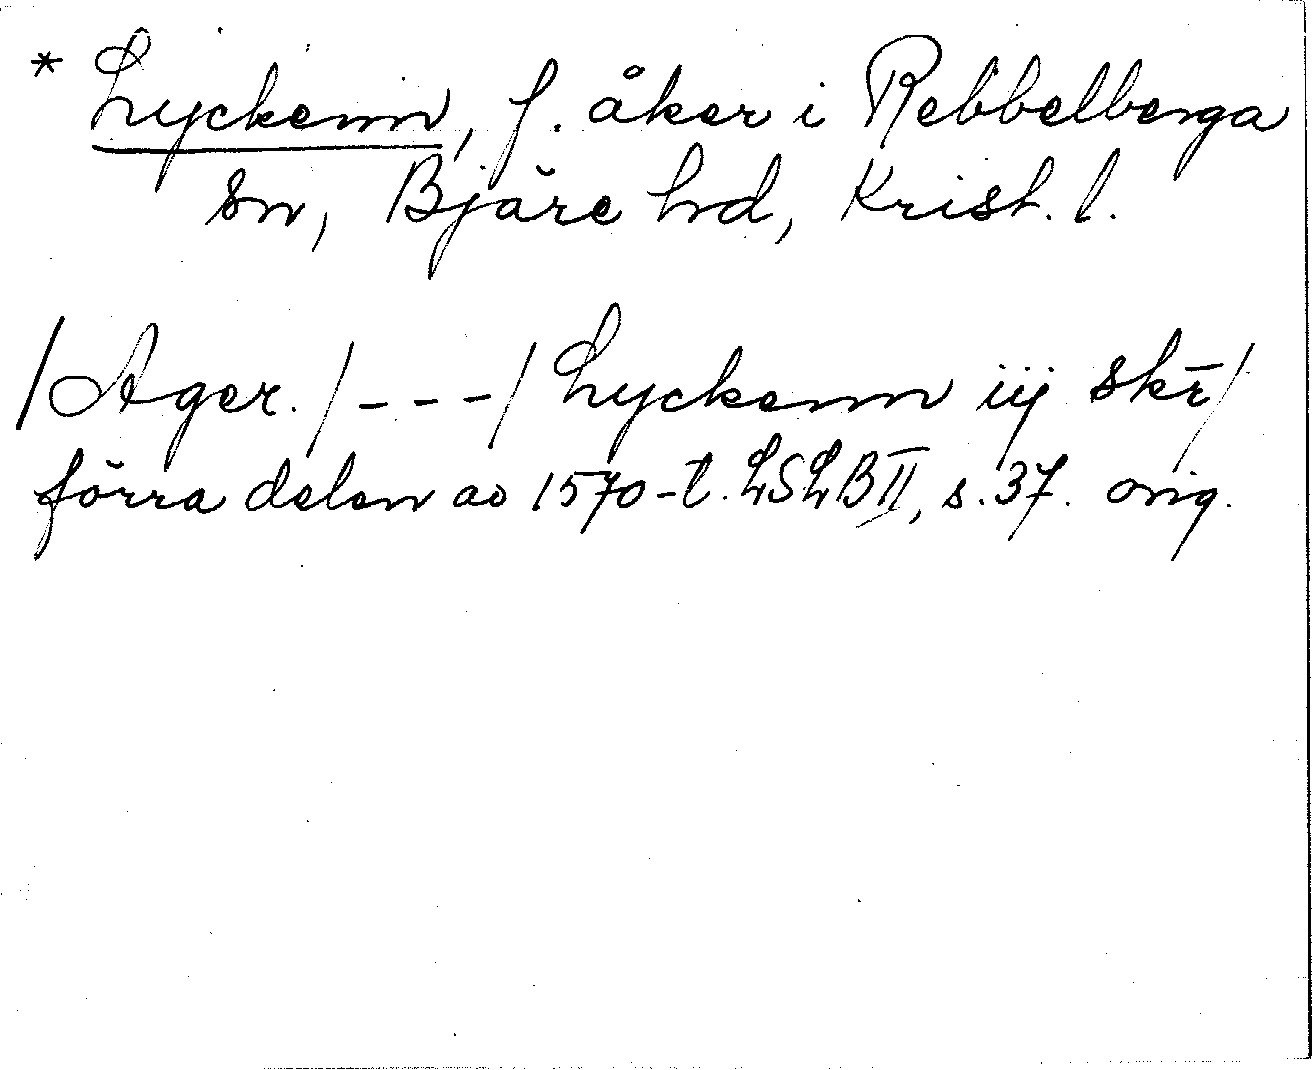 * Lyckenn, f. åker i Rebbelberga
sn, Bjäre hd, Krist. l.
/Ager. /---/ Lyckenn iij skr̄/
förra delen av 1570-t. LSLB II, s. 37. orig.